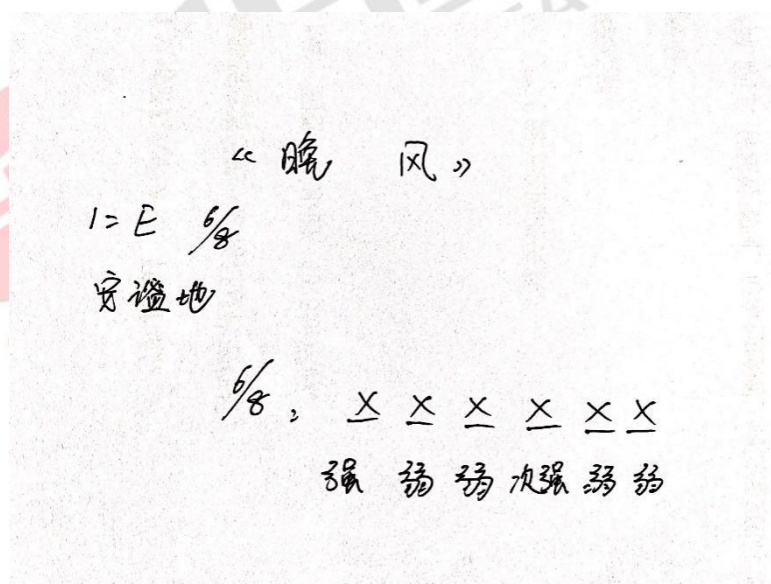 《晚 风》
1=E 6/8
安谧地
6/8: X X X X X X
强 弱 弱 次强 弱 弱